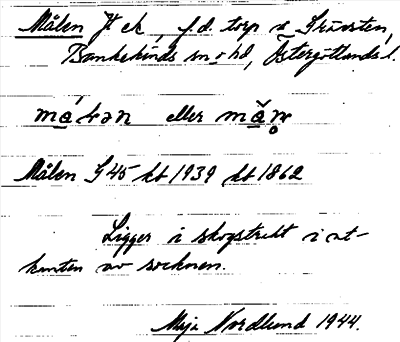 Målen J ek, f.d. torp u Grävsten,
Bankekinds sn o hd, Östergötlands l.
má̠ɫən eller mä̠n
Målen G45 kb 1939 kb 1862
Ligger i skogstrakt i ut-
kanten av socknen.
Maja Nordlund 1944.